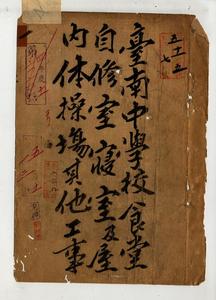 五十五
七
臺南中學校食堂
自修室寢室及屋
内体操場其他工事